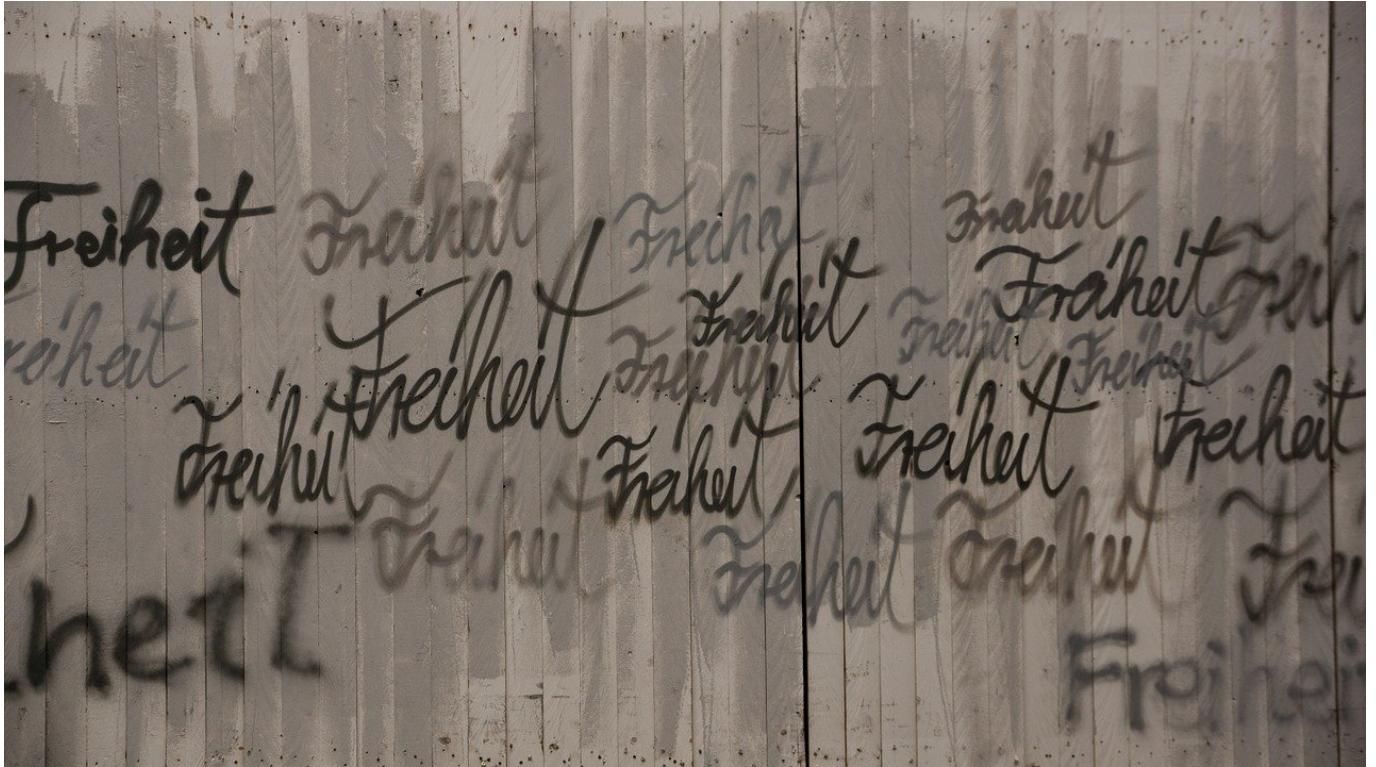 Freiheit
Freiheit
Freiheit
Freiheit
Freiheit
Freiheit
Freih
reiheit
Freiheit
Freiheit
Freiheit
Freiheit
Freiheit
Freiheit
Freiheit
Freiheit
Freiheit
Freiheit
Freiheit
Frei
heiT
Freihei